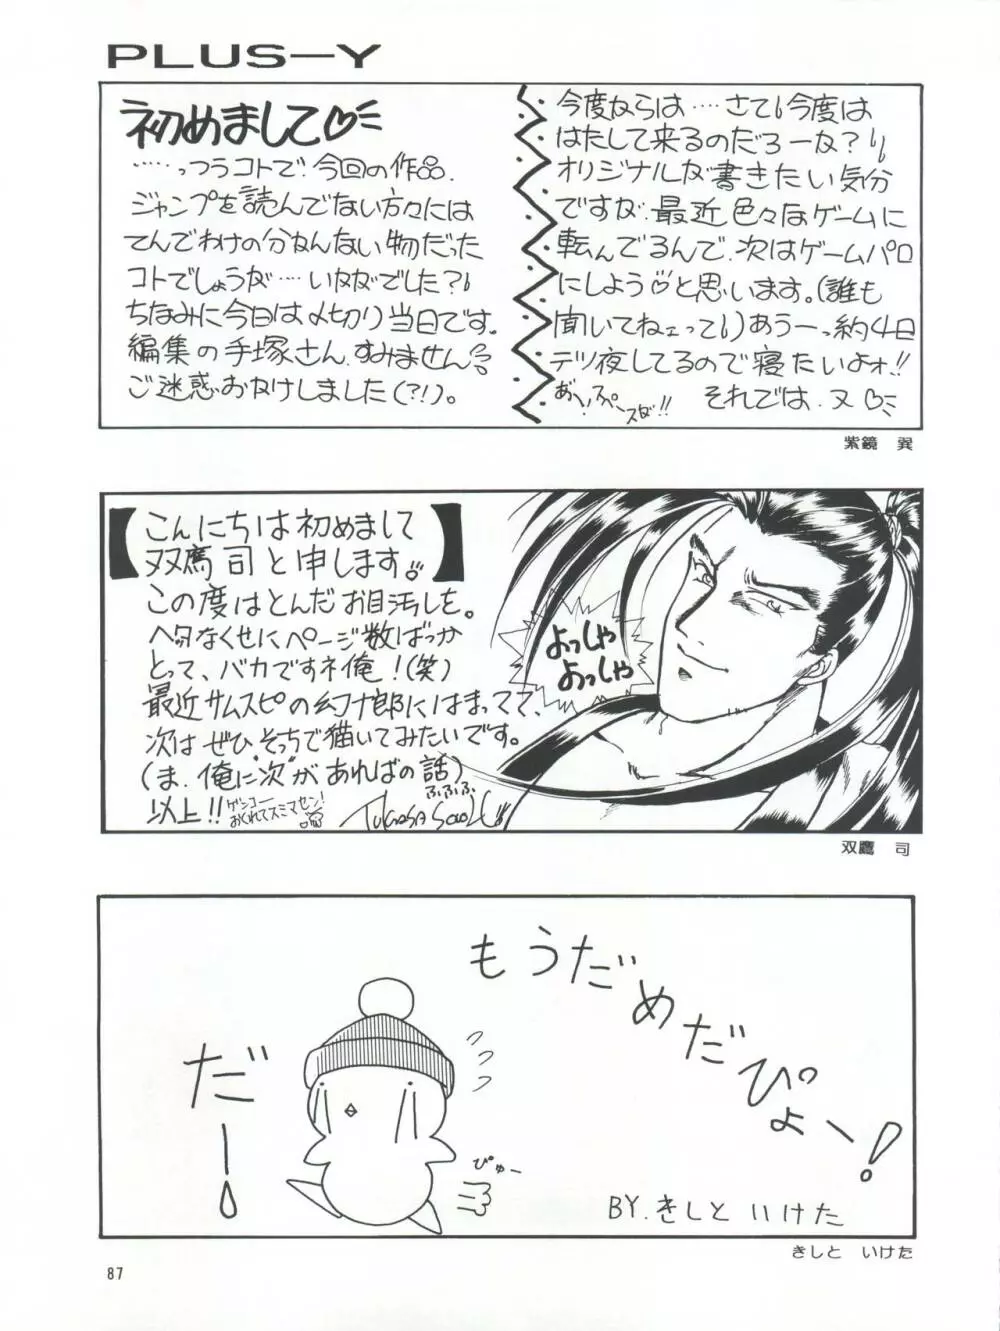 PLUS—Y
初めまして♡
……っつうコトで、今回の作品、
ジャンプを読んでない方々には
てんでわけの分かんない物だった
コトでしょうが……いかがでした?
ちなみに今日は〆切り当日です。
編集の手塚さん、すみません
ご迷惑おかけしました(?!)。
今度からは……さて、今度は
はたして来るのだろーか?
オリジナルが書きたい気分
ですが、最近色々なゲームに
転んでるんで、次はゲームパロ
にしよう♡と思います。(誰も
聞いてねェって)あうーっ約4日
テツ夜してるので寝たいよォ!!
あ、スペースが!!
それでは、又♡
紫鏡 巽
【こんにちは初めまして
双鷹司と申します。】
この度はとんだお目汚しを。
ヘタなくせにページ数ばっか
とって、バカですネ俺!(笑)
最近サムスピの幻十郎にはまってて、
次はぜひそっちで描いてみたいです。
(ま、俺に"次"があればの話)
ふふふ
以上!!
ゲンコー
おくれてスミマセン!
よっしゃ
よっしゃ
双鷹 司
もうだめだぴょー!
だー
ぴゅー
BY.きしと いけた
きしと いけた
87